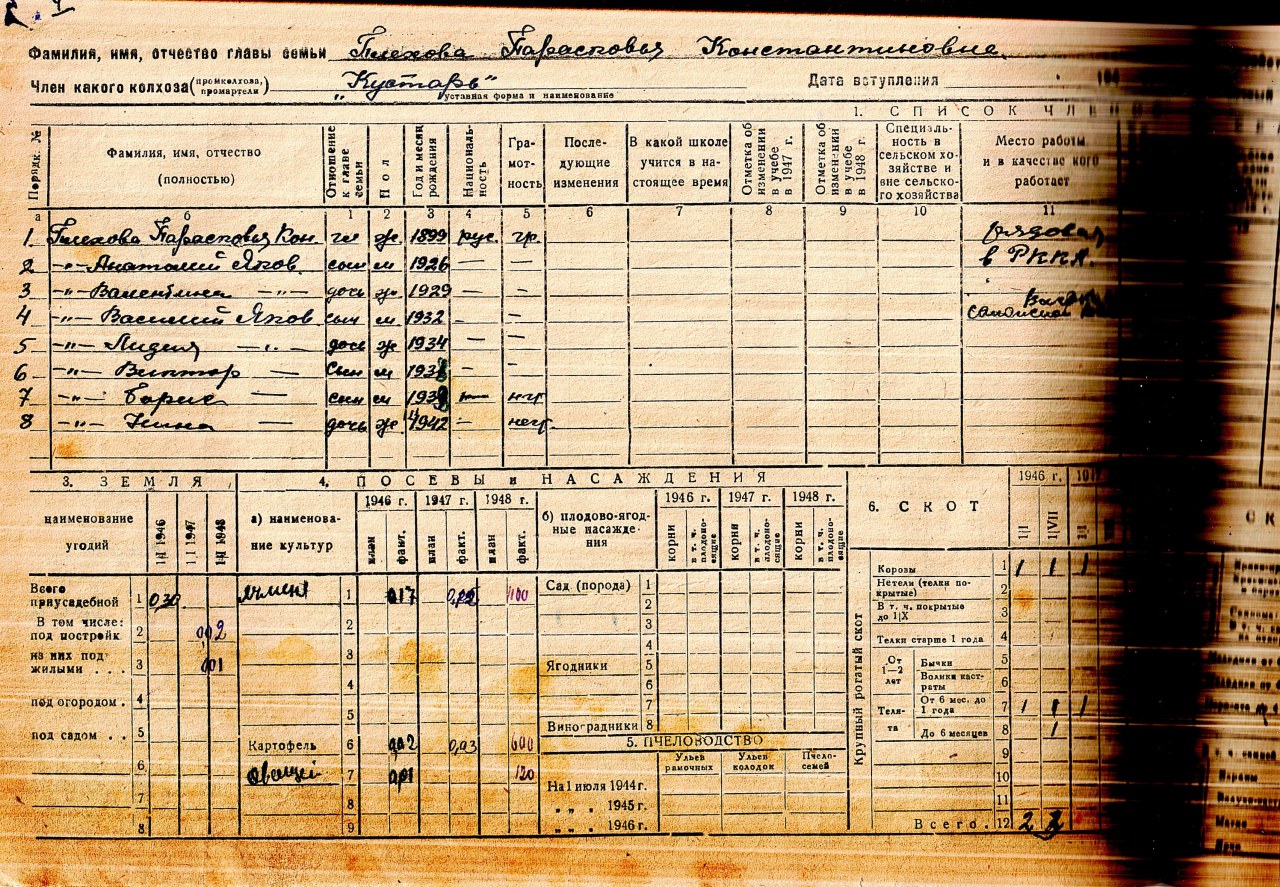 Фамилия, имя, отчество главы семьи Плехова Парасковья Константиновне
Член какого колхоза (промколхоза, промартели) „Кустарь“ Дата вступления 194
уставная форма и наименование
1. СПИСОК ЧЛЕН
Порядк. № Фамилия, имя, отчество (полностью) Отношение к главе семьи Пол Год и месяц рождения Националь-ность Гра-мот-ность После-дующие изменения В какой школе учится в на-стоящее время Отметка об изменении в учебе в 1947 г. Отметка об изменении в учебе в 1948 г. Специаль-ность в сельском хо-зяйстве и вне сельско-го хозяйства Место работы и в качестве кого работает
а б 1 2 3 4 5 6 7 8 9 10 11
1 Плехова Парасковья Кон. гл ж 1899 рус. гр. рядовая
2 -"- Анатолий Яков. сын м 1926 — — в РККА.
3 -"- Валентина -"- дочь ж 1929 — -
4 -"- Василий Яков сын м 1932 - -
5 -"- Лидия -"- дочь ж 1934 — -
6 -"- Виктор — сын м 193 - -
7 -"- Борис — сын м 193 — негр
8 -"- Нина — дочь ж 1942 - негр.
3. ЗЕМЛЯ 4. ПОСЕВЫ и НАСАЖДЕНИЯ 6. СКОТ
наименование угодий 1|I 1946 1|I 1947 1|I 1948
а) наименова-ние культур 1946 г. 1947 г. 1948 г.
план факт. план факт. план факт.
б) плодово-ягод-ные насажде-ния 1946 г. 1947 г. 1948 г.
корни в т. ч. плодоно-сящие корни в т. ч. плодоно-сящие корни в т. ч. плодоно-сящие
1946 г.
1|I 1|VII 1|I
Всего приусадебной 1 0,30 ячмень 1 0,17 0,22 100
В том числе: под постройк. 2 002 2
из них под жилыми . . . 3 001 3
под огородом . 4 4
под садом . . 5 5
6 Картофель 6 0,02 0,03 600
7 Овощей 7 0,01 120
8 8
9
Сад (порода) 1
2
3
4
Ягодники 5
6
7
Виноградники 8
5. ПЧЕЛОВОДСТВО
Ульев рамочных Ульев колодок Пчело-семей
На 1 июля 1944 г.
„ „ „ 1945 г.
„ „ „ 1946 г.
Крупный рогатый скот
Коровы 1 1 1 1
Нетели (телки по-крытые) 2
В т. ч. покрытые до 1|X 3
Телки старше 1 года 4
От 1—2 лет Бычки 5
Волики каст-раты 6
Теля-та От 6 мес. до 1 года 7 1 1 1
До 6 месяцев 8 1
9
10
11
Всего . 12 2 3